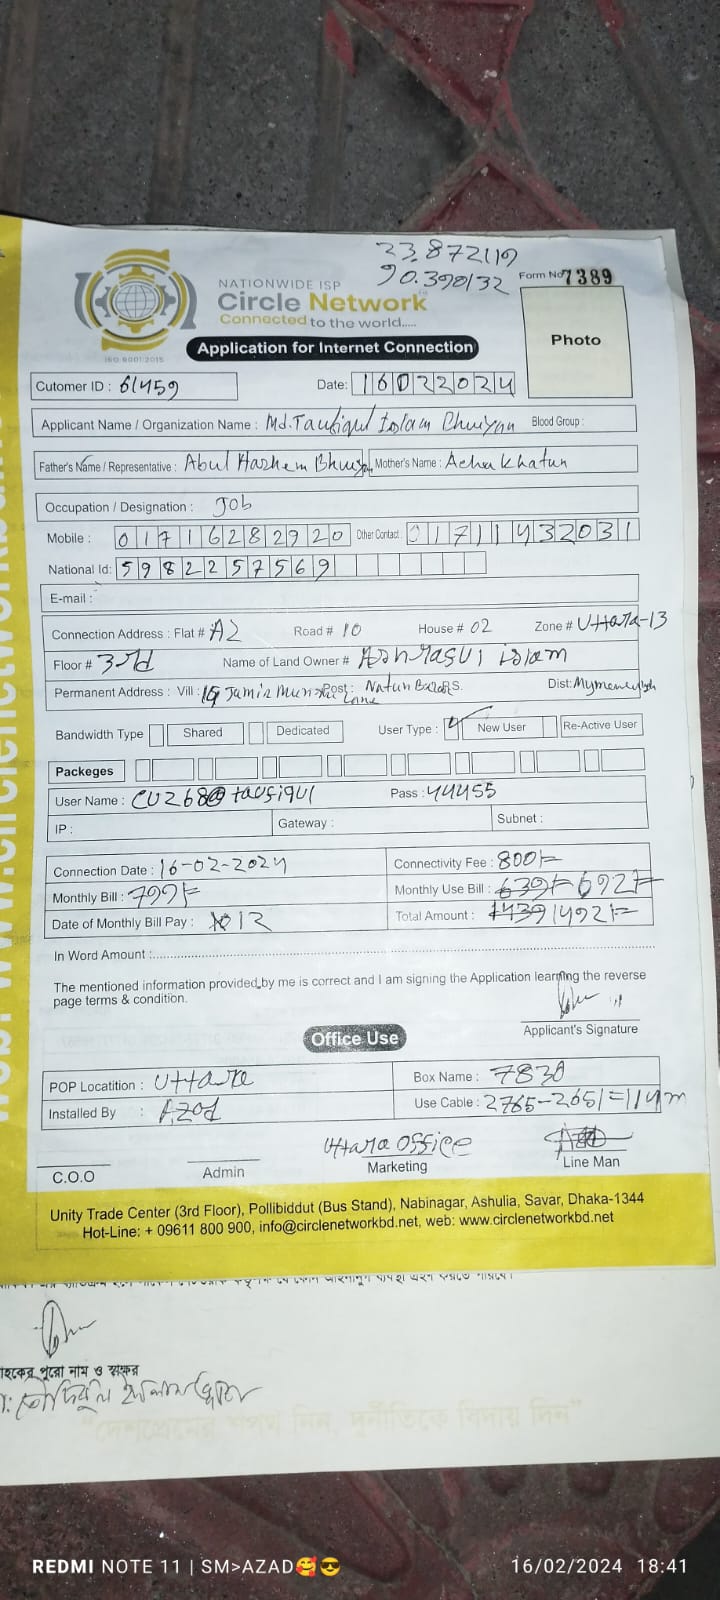 23.872119
90.390132
NATIONWIDE ISP
Circle Network
Connected to the world.....
ISO 9001:2015
Form No 7389
Photo
Application for Internet Connection
Cutomer ID : 61459 Date: 16022024
Applicant Name / Organization Name : Md. Taufiqul Islam Bhuiyan Blood Group :
Father's Name / Representative : Abul Hashem Bhuiyan Mother's Name : Acha Khatun
Occupation / Designation : Job
Mobile : 01716282920 Other Contact : 01711432031
National Id: 5982257569
E-mail :
Connection Address : Flat # A2 Road # 10 House # 02 Zone # Uttara-13
Floor # 3rd Name of Land Owner # Ashraful islam
Permanent Address : Vill : Jamir Munshi Lane Post: Natun Bazar P.S. Dist: Mymensingh
Bandwidth Type Shared Dedicated User Type : New User Re-Active User
Packeges
User Name : CU268@taufiqul Pass : 44455
IP : Gateway : Subnet :
Connection Date : 16-02-2024 Connectivity Fee : 800/=
Monthly Bill : 799/= Monthly Use Bill : 639/= 692/=
Date of Monthly Bill Pay : 12 Total Amount : 1439 1492/=
In Word Amount :
The mentioned information provided by me is correct and I am signing the Application learning the reverse
page terms & condition.
Applicant's Signature
Office Use
POP Locatition : Uttara Box Name : 7830
Installed By : Azad Use Cable : 2765-2651=114m
Uttara Office
C.O.O Admin Marketing Line Man
Unity Trade Center (3rd Floor), Pollibiddut (Bus Stand), Nabinagar, Ashulia, Savar, Dhaka-1344
Hot-Line: + 09611 800 900, info@circlenetworkbd.net, web: www.circlenetworkbd.net
হকের পুরো নাম ও স্বাক্ষর
"দেশপ্রেমের শপথ নিন, দুর্নীতিকে বিদায় দিন"
REDMI NOTE 11 | SM>AZAD🥰😎 16/02/2024 18:41